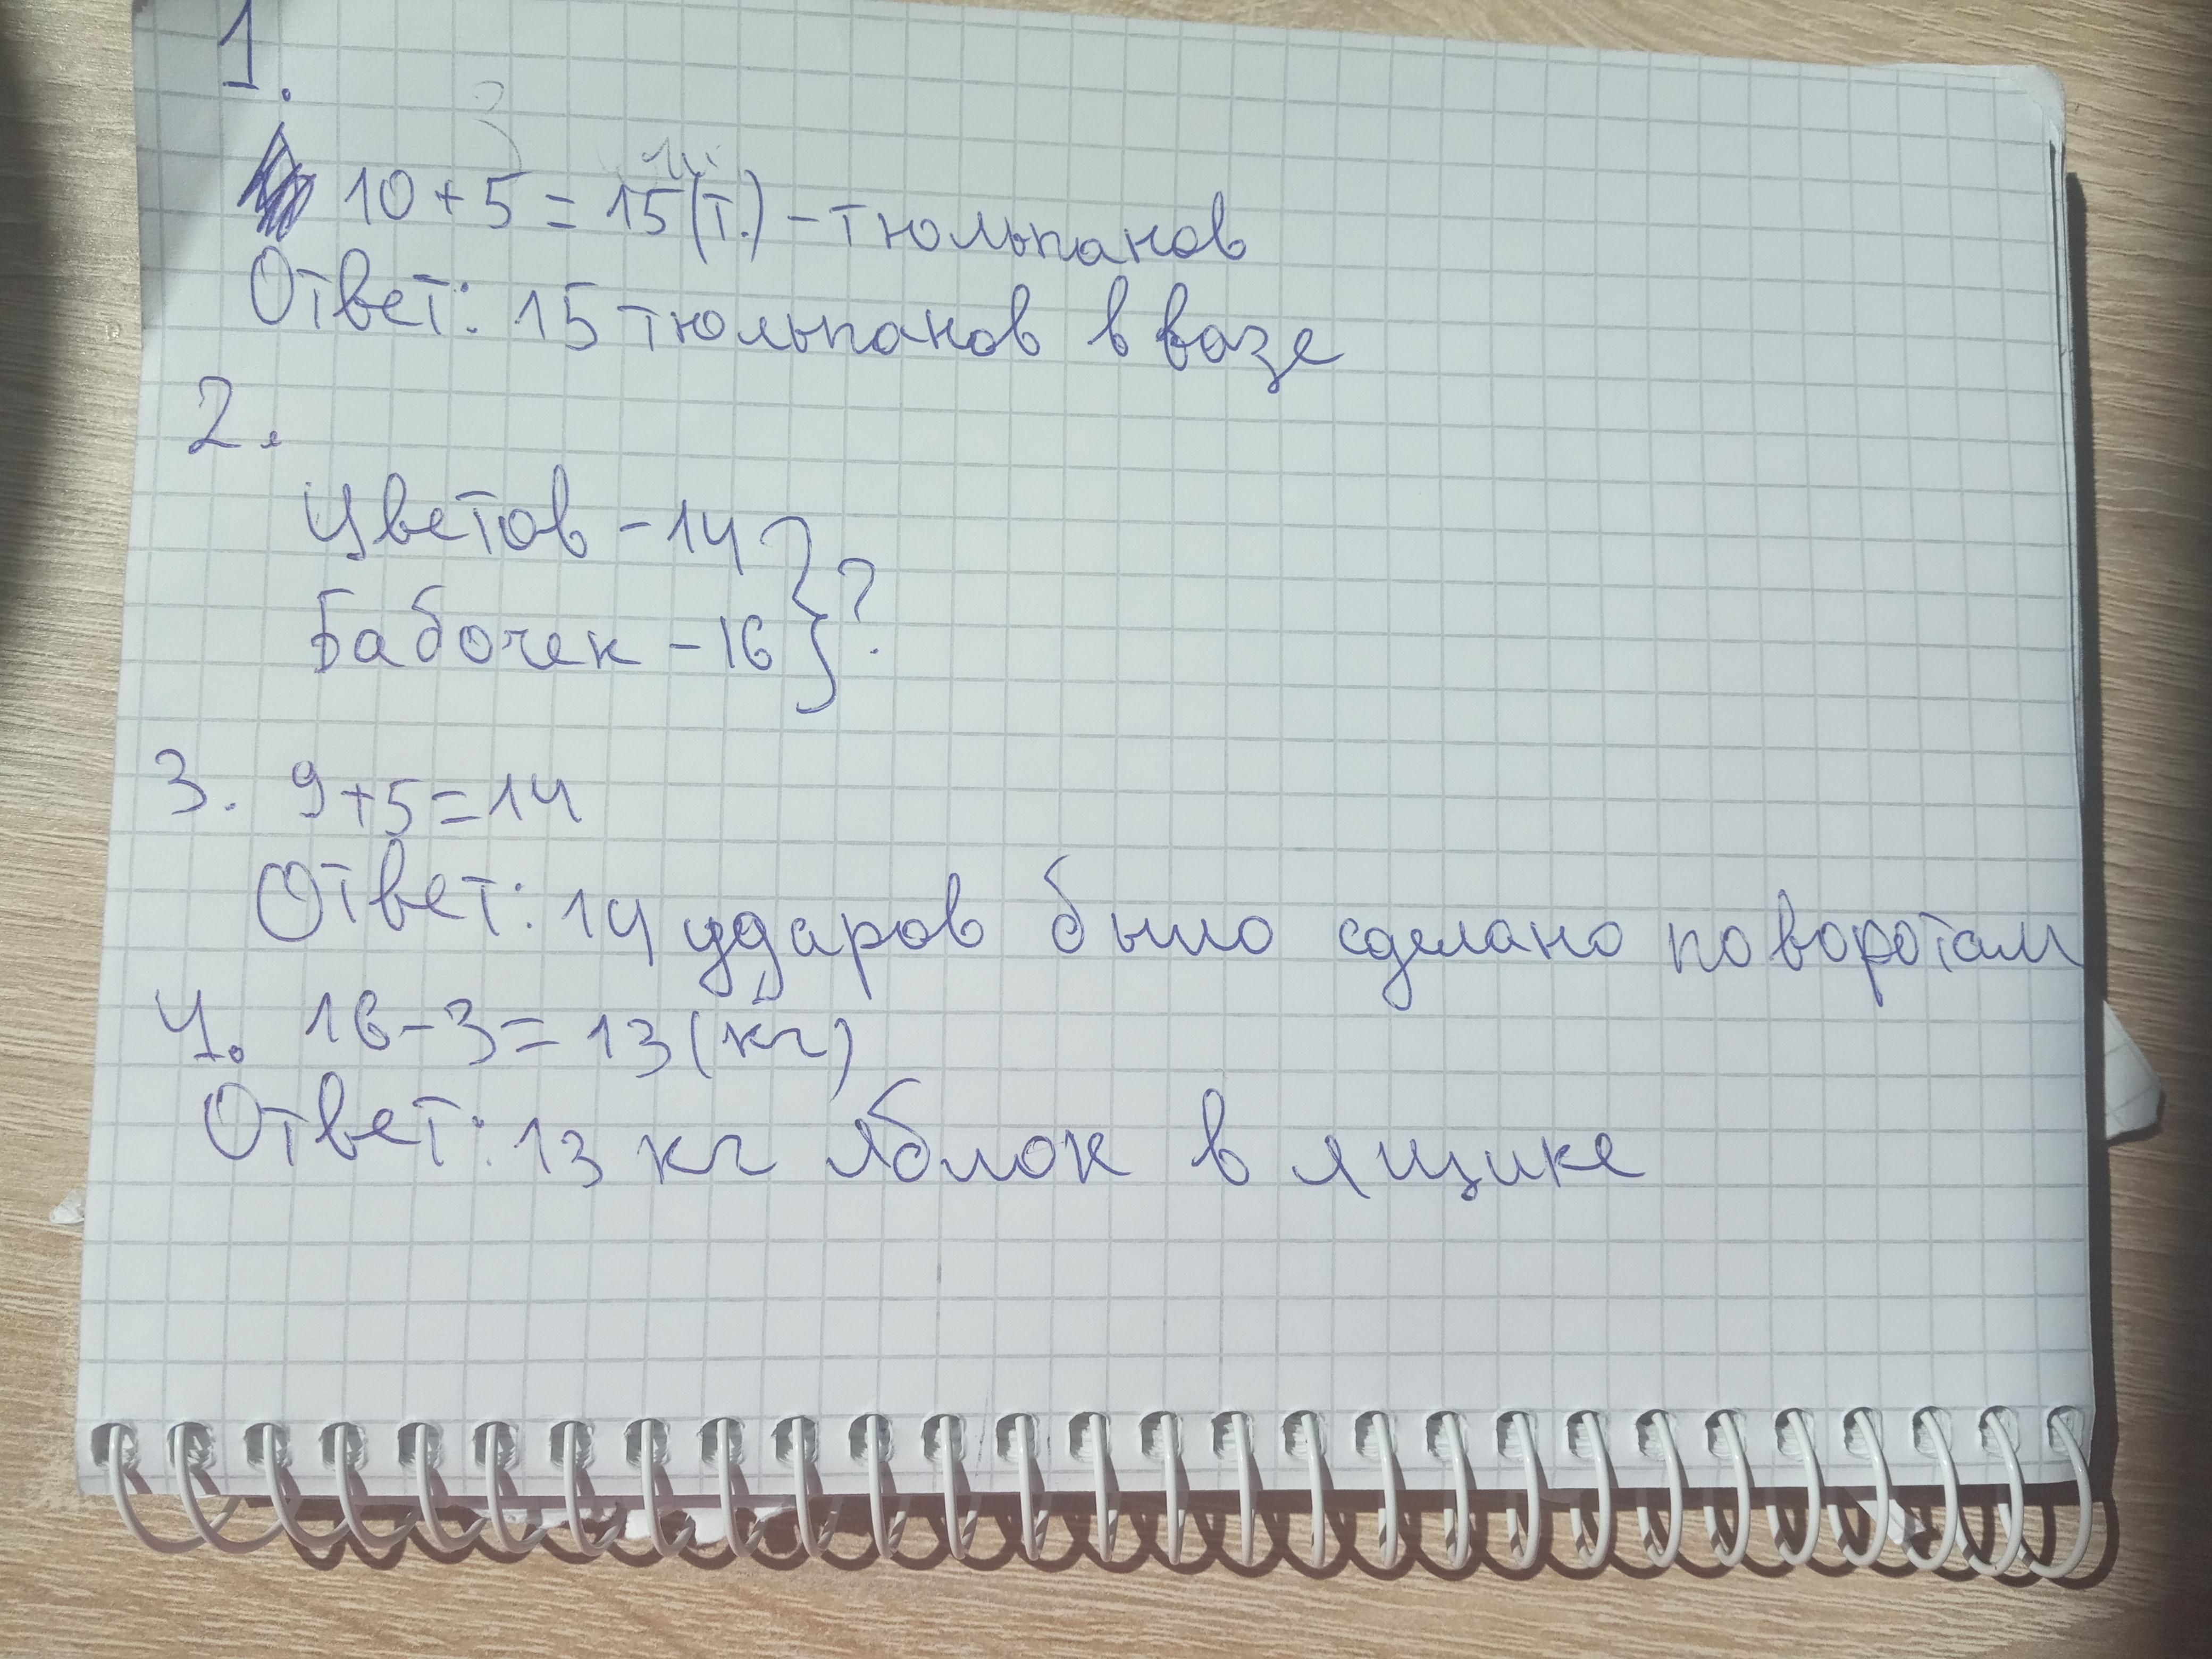 1.
10+5=15(т.)-тюльпанов
Ответ: 15 тюльпанов в вазе
2.
Цветов -14 } ?
Бабочек -16
3. 9+5=14
Ответ: 14 ударов было сделано по воротам
4. 16-3=13(кг)
Ответ: 13 кг яблок в ящике